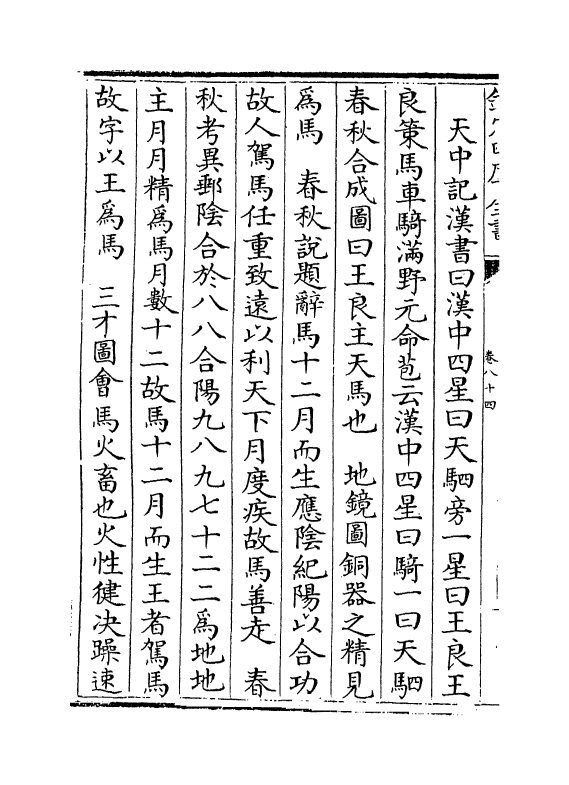 欽定四庫全書
卷八十四
天中記漢書曰漢中四星曰天駟旁一星曰王良王
良策馬車騎滿野元命苞云漢中四星曰騎一曰天駟
春秋合成圖曰王良主天馬也 地鏡圖銅器之精見
為馬 春秋說題辭馬十二月而生應陰紀陽以合功
故人駕馬任重致遠以利天下月度疾故馬善走 春
秋考異郵陰合於八八合陽九八九七十二二為地地
主月月精為馬月數十二故馬十二月而生王者駕馬
故字以王為馬 三才圖會馬火畜也火性健决躁速